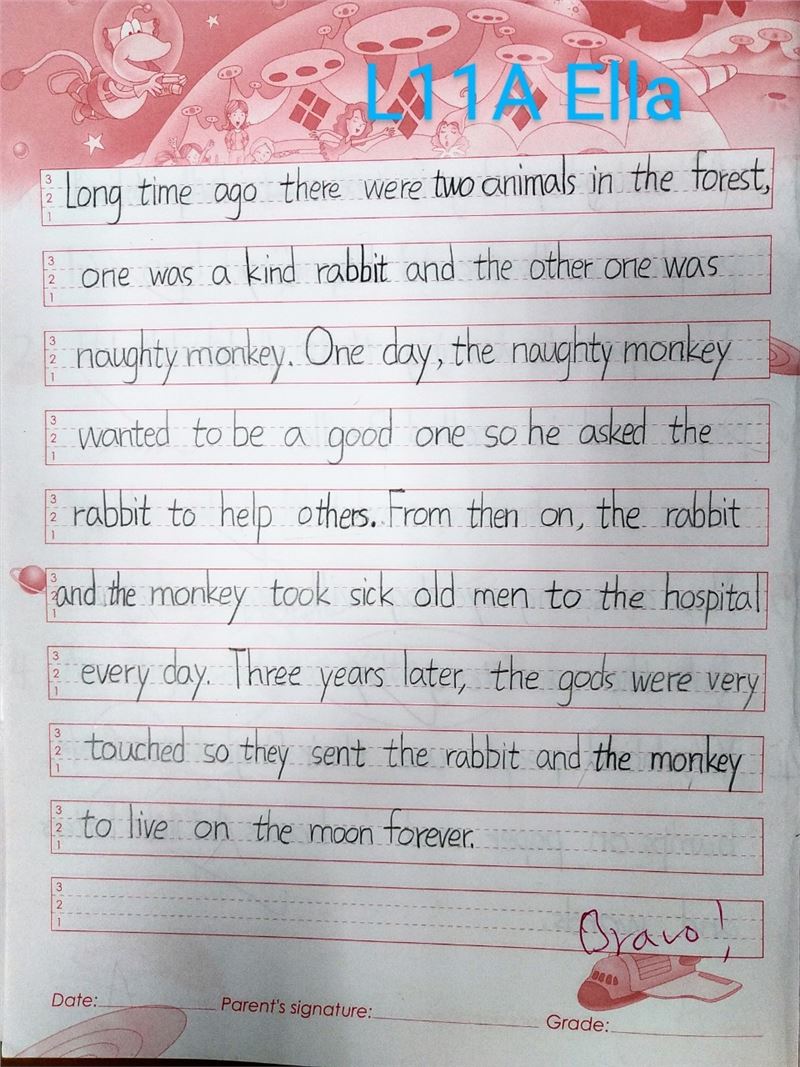 L11A Ella
3 Long time ago there were two animals in the forest,
2
1
3 one was a kind rabbit and the other one was
2
1
3 naughty monkey. One day, the naughty monkey
2
1
3 wanted to be a good one so he asked the
2
1
3 rabbit to help others. From then on, the rabbit
2
1
3 and the monkey took sick old men to the hospital
2
1
3 every day. Three years later, the gods were very
2
1
3 touched so they sent the rabbit and the monkey
2
1
3 to live on the moon forever.
2
1
3
2
1
Bravo!
Date: Parent's signature: Grade: